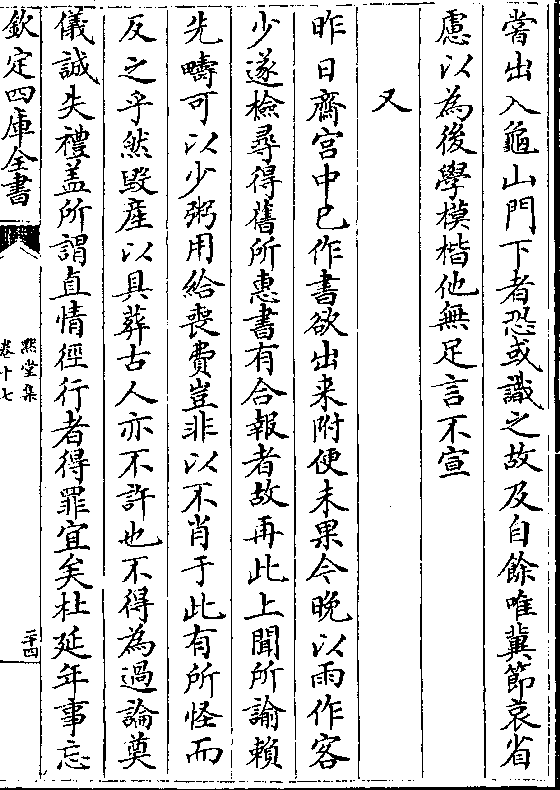 嘗出入龜山門下者恐或識之故及自餘唯冀節哀省
慮以為後學模楷他無足言不宣
又
昨日齋宫中已作書欲出来附便未果今晚以雨作客
少遂檢尋得舊所惠書有合報者故再此上聞所諭賴
先疇可以少粥用給喪費豈非以不肖于此有所怪而
反之乎然毀産以具葬古人亦不許也不得為過論奠
儀誠失禮盖所謂直情徑行者得罪宜矣杜延年事忘
欽定四庫全書
黙堂集
卷十七
二十四